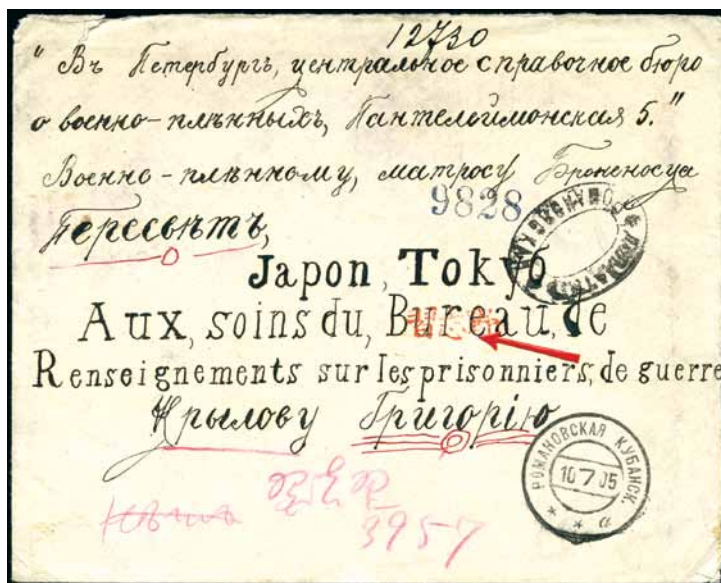 12730
" Въ Петербургъ, центральное справочное бюро
о военно-плѣнныхъ, Пантелеймонская 5."
Военно-плѣнному, матросу Броненосца
9828
Пересвѣтъ,
Japon, Tokyo
Aux, soins du, Bureau, de
Renseignements sur les prisonniers, de guerre
Крылову Григорію
РОМАНОВСКАЯ КУБАНСК.
10 7 05
* * а
3957